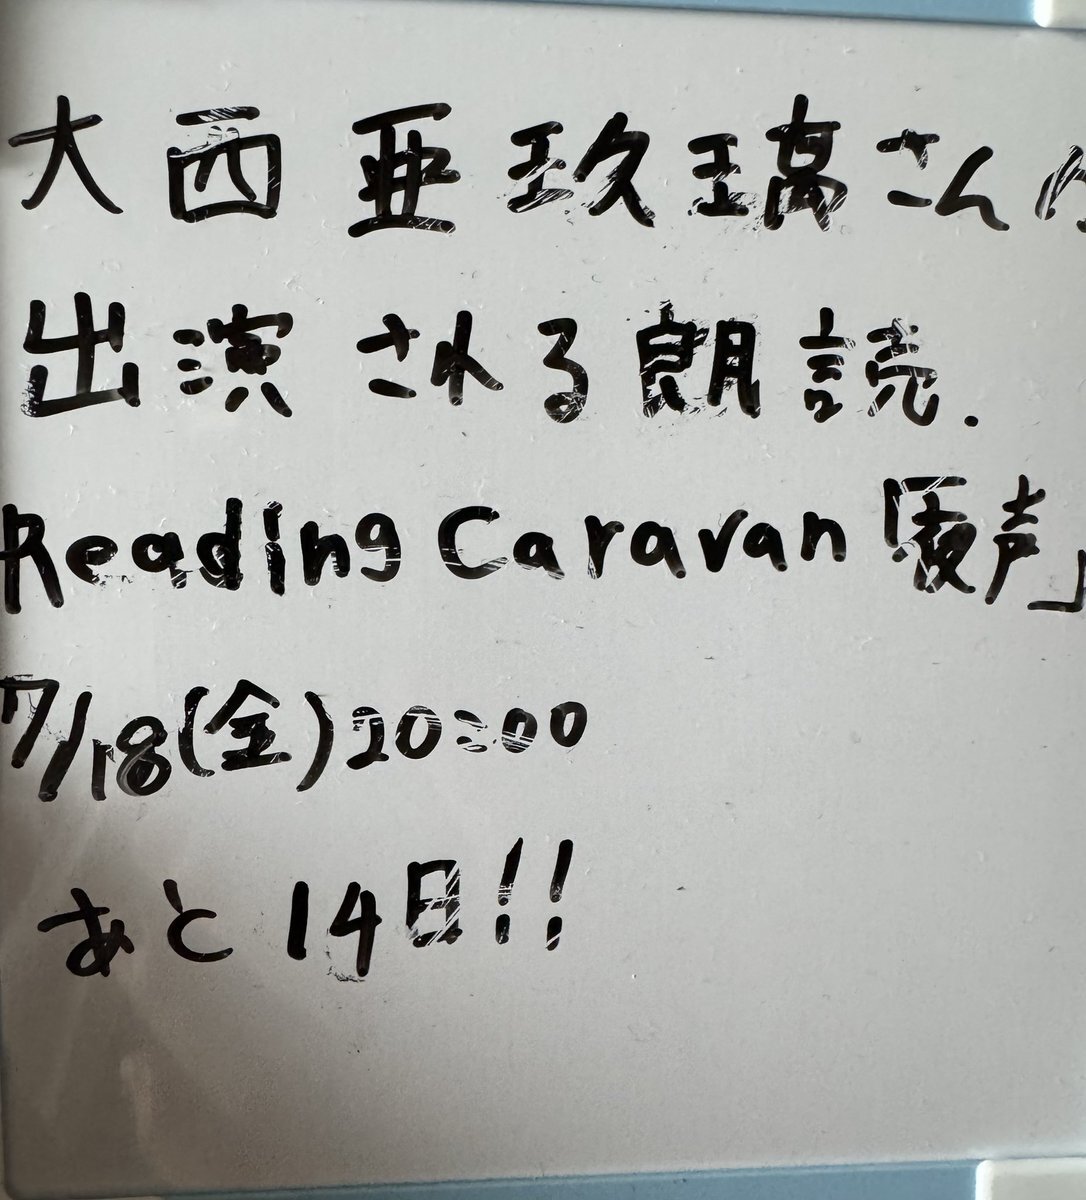 大西亜玖璃さんが
出演される朗読.
Reading Caravan「夜声」
7/18(金)20:00
あと14日!!